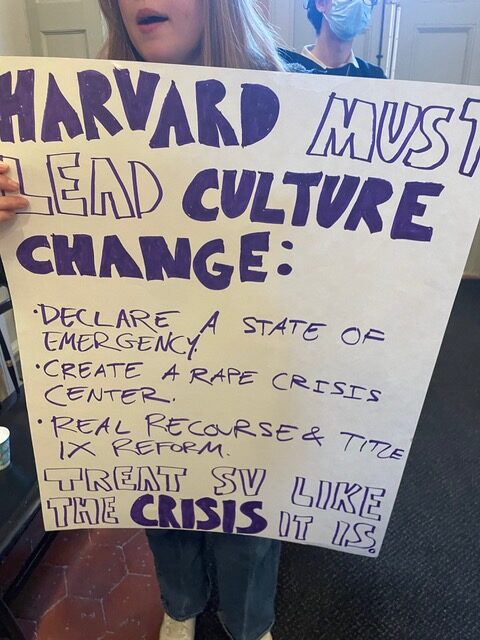 HARVARD MUST
LEAD CULTURE
CHANGE:
·DECLARE A STATE OF
EMERGENCY.
·CREATE A RAPE CRISIS
CENTER.
·REAL RECOURSE & TITLE
IX REFORM.
TREAT SV LIKE
THE CRISIS IT IS.